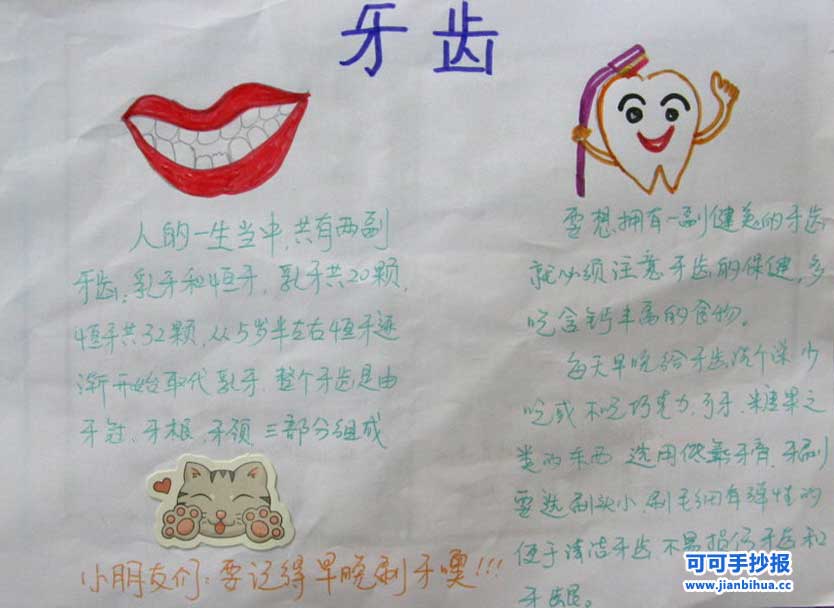 牙齿
人的一生当中,共有两副
牙齿:乳牙和恒牙,乳牙共20颗,
恒牙共32颗,从5岁半左右恒牙逐
渐开始取代乳牙,整个牙齿是由
牙冠、牙根、牙颈 三部分组成
小朋友们:要记得早晚刷牙噢!!!
要想拥有一副健美的牙齿
就必须注意牙齿的保健,多
吃含钙丰富的食物。
每天早晚给牙齿洗个澡 少
吃或不吃巧克力、 糖果之
类的东西 选用 牙膏,牙刷
要选刷头小,刷毛细有弹性的
便于清洁牙齿 不易损伤牙齿和
牙龈。
可可手抄报
www.jianbihua.cc